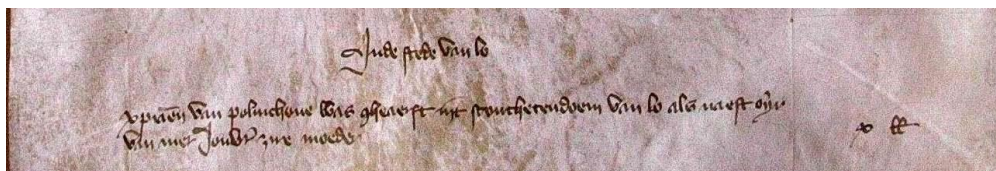 Inde stede van lo
xp̄iaen van polinchove was gheerft int scouthetendoem van lo als naest oyr
van mer Jouvr̄ zire moeder
x ll